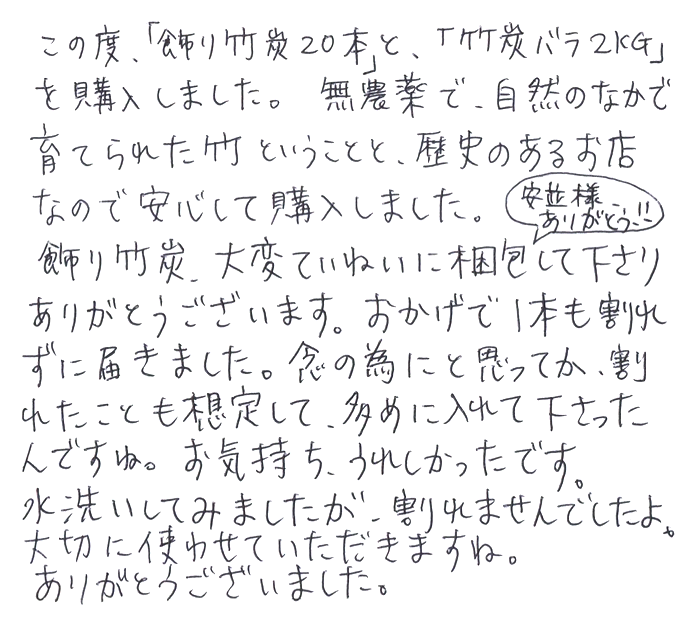 この度、「飾り竹炭20本」と、「竹炭バラ2KG」
を購入しました。 無農薬で、自然のなかで
育てられた竹ということと、歴史のあるお店
なので安心して購入しました。
安並様、
ありがとう!!
飾り竹炭、大変ていねいに梱包して下さり
ありがとうございます。おかげで1本も割れ
ずに届きました。念の為にと思ってか、割
れたことも想定して、多めに入れて下さった
んですね。お気持ち、うれしかったです。
水洗いしてみましたが、割れませんでしたよ。
大切に使わせていただきますね。
ありがとうございました。